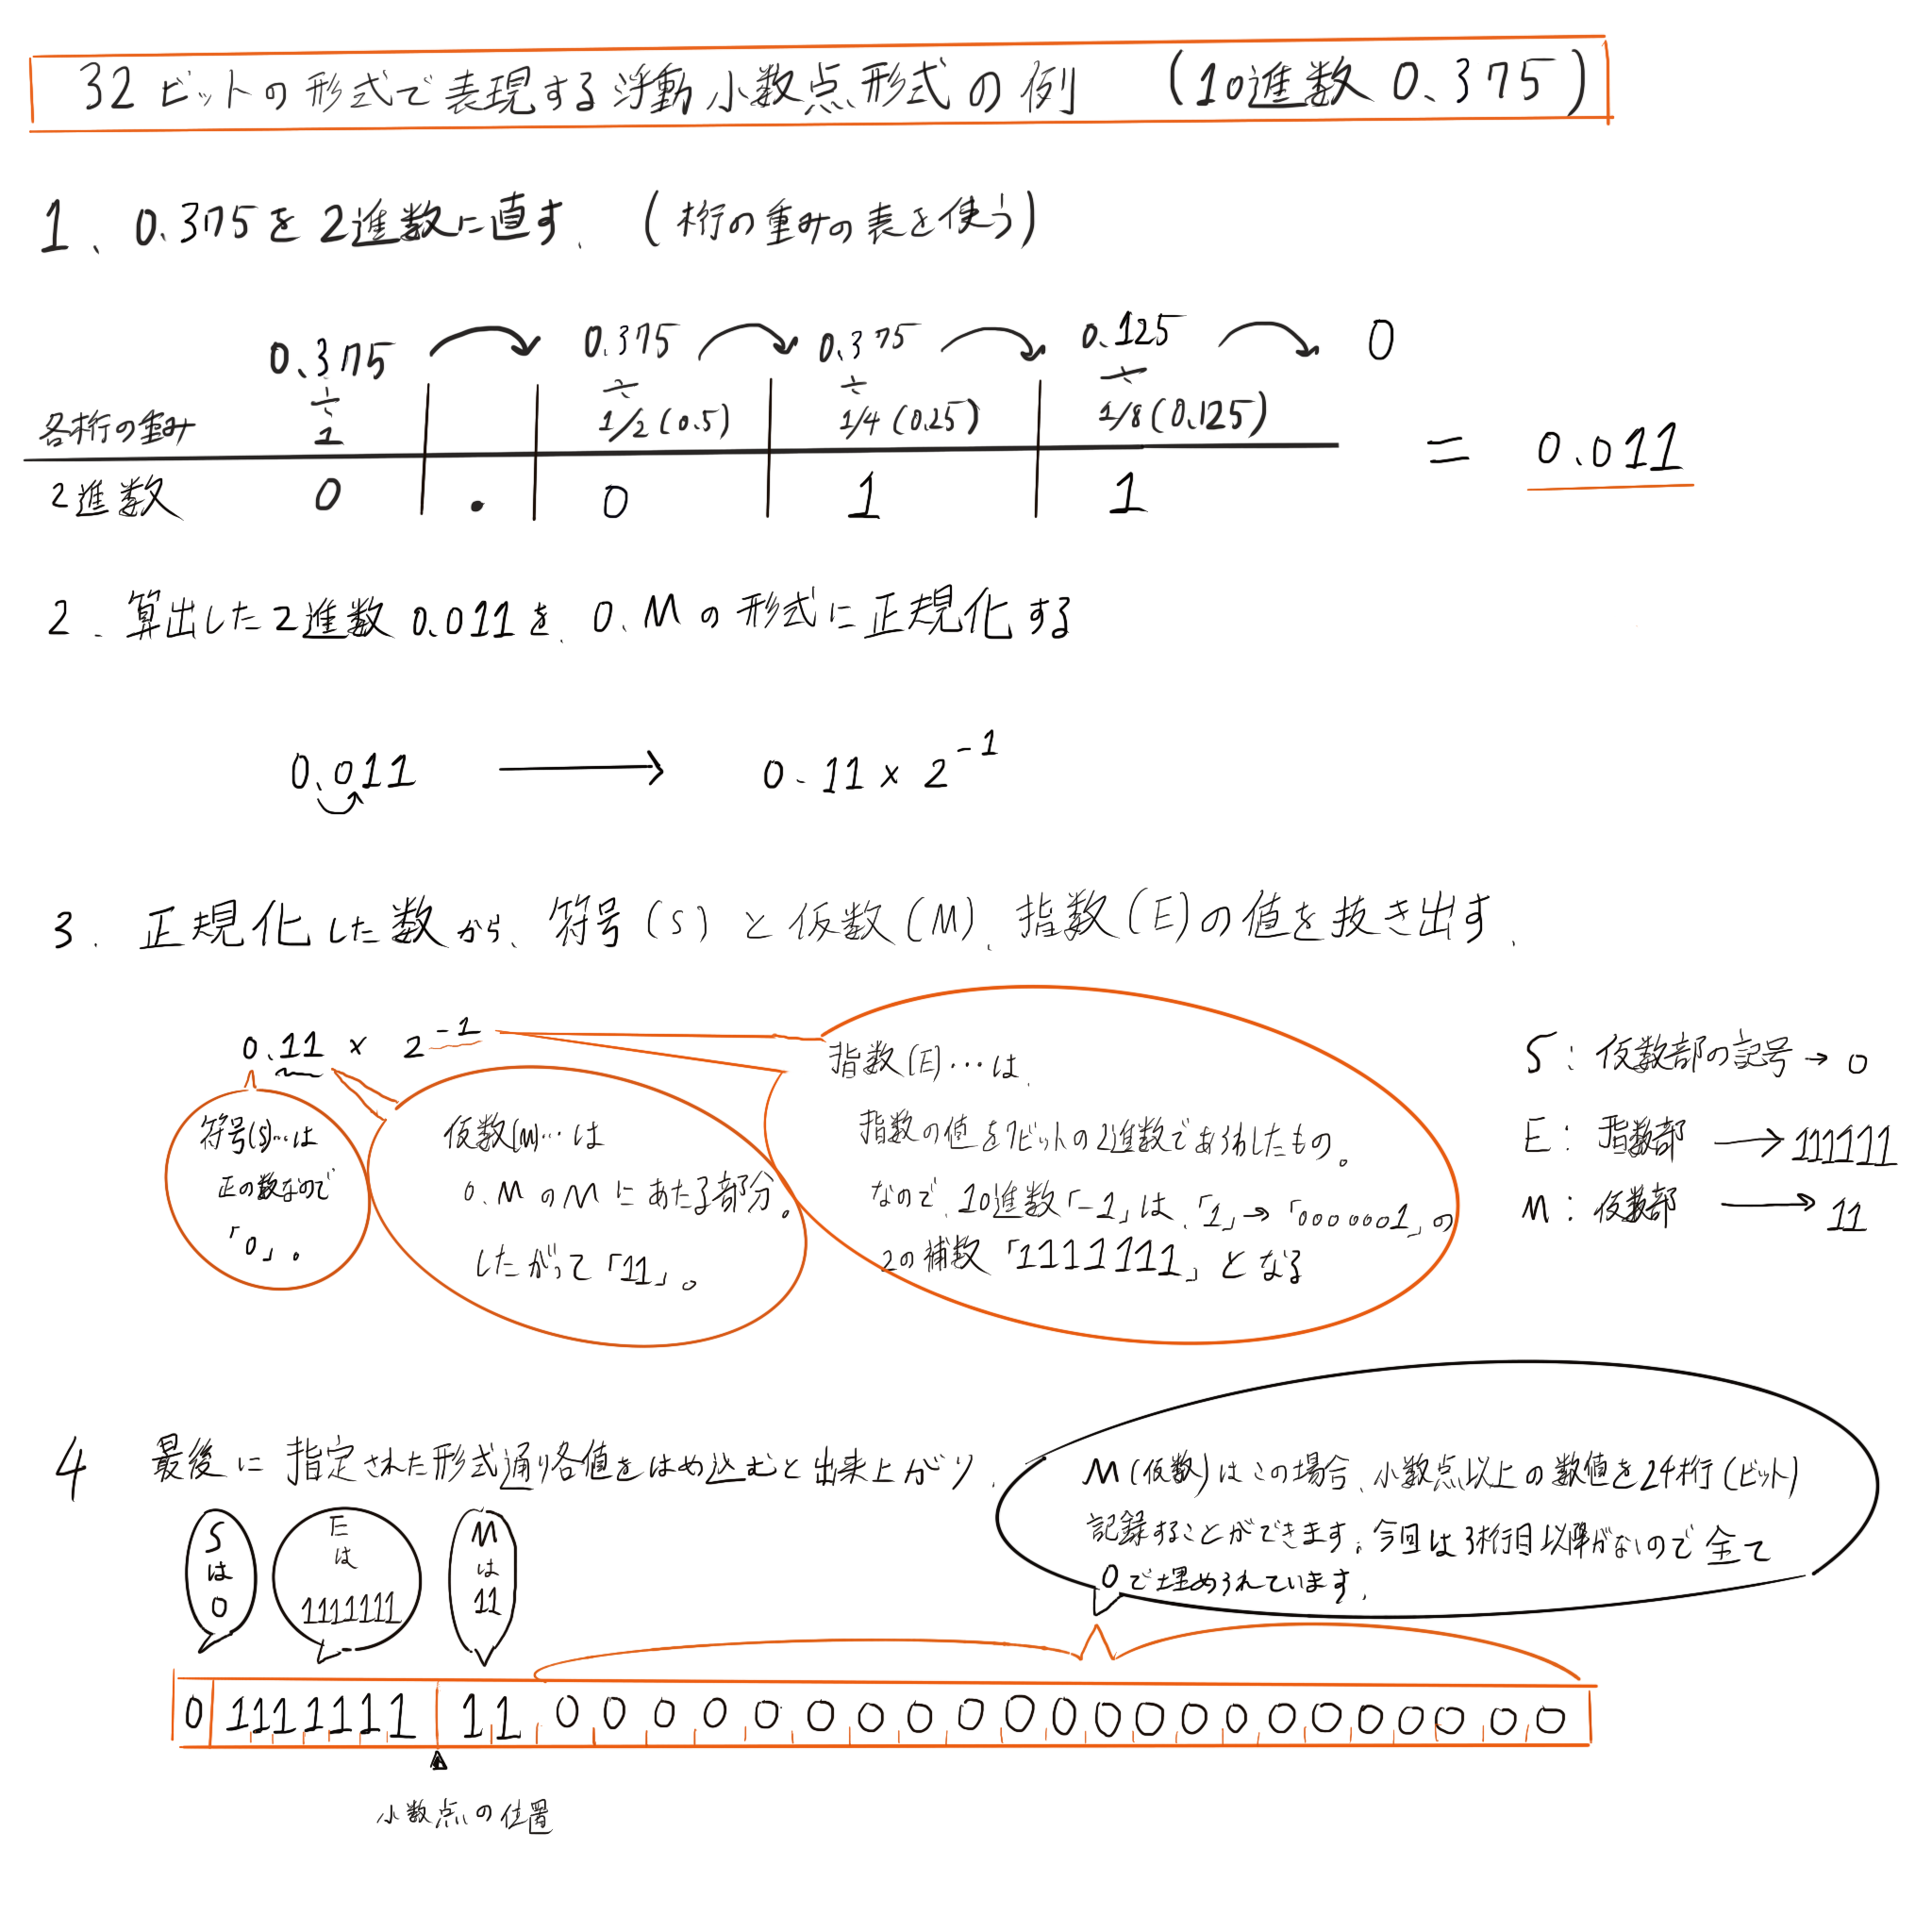 32ビットの形式で表現する浮動小数点形式の例 (10進数 0.375)
1、0.375を2進数に直す. (桁の重みの表を使う)
0.375 0.375 0.375 0.125 0
÷ ÷ ÷ ÷
各桁の重み 1 1/2(0.5) 1/4(0.25) 1/8(0.125)
2進数 0 . 0 1 1
= 0.011
2. 算出した2進数 0.011を、0.Mの形式に正規化する
0.011 → 0.11 × 2^-1
3. 正規化した数から、符号(S)と仮数(M)、指数(E)の値を抜き出す.
0.11 × 2^-1
符号(S)…は
正の数なので
「0」。
仮数(M)…は
0.MのMにあたる部分。
したがって「11」。
指数(E)…は、
指数の値を7ビットの2進数であらわしたもの。
なので、10進数「-1」は、「1」→「0000001」の
2の補数「1111111」となる
S: 仮数部の記号→0
E: 指数部→111111
M: 仮数部→11
4 最後に指定された形式通り各値をはめ込むと出来上がり.
M(仮数)はこの場合、小数点以上の数値を24桁(ビット)
記録することができます。今回は3桁目以降がないので全て
0で埋められています.
Sは0
Eは
1111111
Mは11
0 1111111 11 0000000000000000000000
小数点の位置